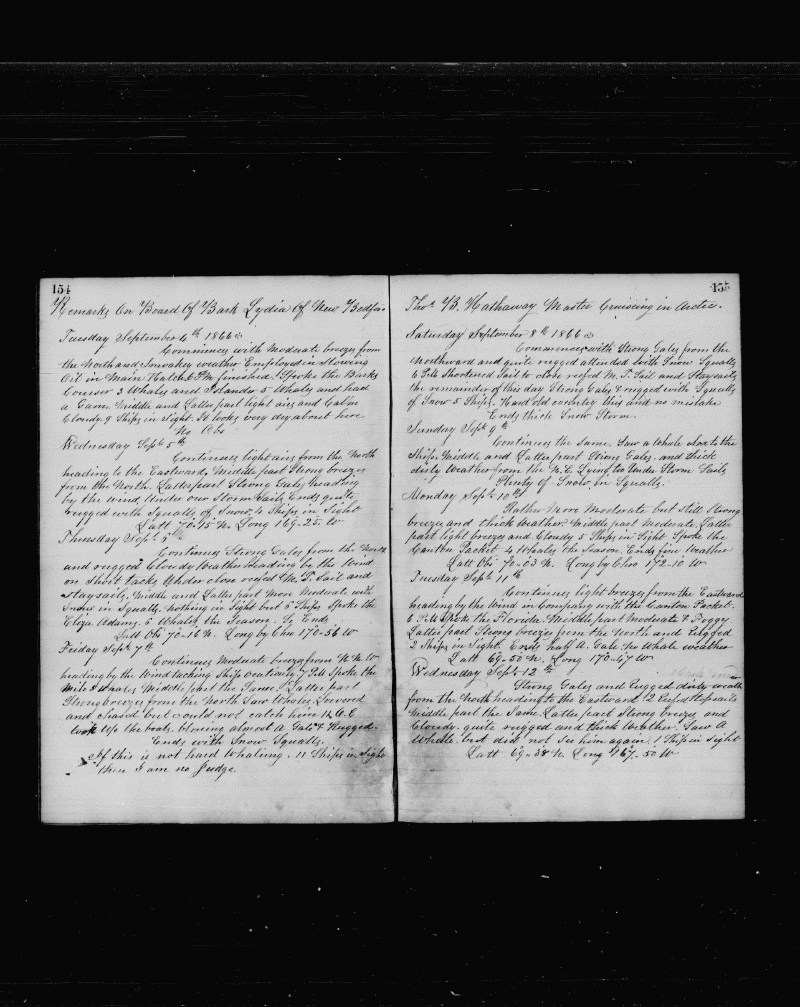 154
Remarks On Board Of Bark Lydia Of New Bedford
Tuesday September 4th 1866
Commences with Moderate breezes from
the North and Smoakey weather Employed in Stowing
Oil in Main Hatch. 6 P.M finished. Spoke the Barks
Courser 3 Whales and Islander 5 Whales and had
a Gam. Middle and Latter part light airs and Calm
Cloudy 9 Ships in Sight. It looks very dry about here
No Obs
Wednesday Sept 5th
Continues light airs from the North
heading to the Eastward, Middle part Strong breezes
from the North. Latter part Strong Gales heading
by the wind, Under our Storm Sails, Ends quite
rugged with Squalls of Snow, 4 Ships in Sight
Latt 70-15 N. Long 169-25. W
Thursday Sept 6th
Continues Strong Gales from the North
and rugged Cloudy Weather heading by the Wind
on Short tacks Under close reefed M. T. Sail and
Staysails, Middle and Latter part More Moderate with
Snow in Squalls. Nothing in Sight but 5 Ships. Spoke the
Eliza Adams. 6 Whales the Season. So Ends
Latt Obs 70-16 N. Long by Chro 170-56 W
Friday Sept 7th
Continues Moderate breezes from N.N.W
heading by the Wind tacking Ship 7 P.M Spoke the
Milo 8 Whales, Middle part the Same. Latter part
Strong breezes from the North Saw Whales, Lowered
and Chased but could not catch him 11 A.M
took up the boats, blowing almost a Gale & Rugged.
Ends with Snow Squalls.
If this is not hard Whaling. 11 Ships in Sight
then I am no Judge.
155
Thos B. Hathaway Master Cruiseing in Arctic.
Saturday September 8th 1866
Commences with Strong Gales from the
Northward and quite rugged attended with Snow Squalls
6 P.M Shortened Sail to close reefed M. T. Sail and Staysails
the remainder of this day Strong Gales & rugged with Squalls
of Snow 5 Ships. Hard old country this and no mistake
Ends thick Snow Storm.
Sunday Sept 9th
Continues the Same. Saw a Whale close to the
Ship. Middle and Latter part Strong Gales. and thick
dirty Weather from the N.E. Lying to Under Storm Sails
Plenty of Snow in Squalls.
Monday Sept 10th
Rather More Moderate but still Strong
breezes and thick Weather. Middle part Moderate. Latter
part light breezes and Cloudy 5 Ships in Sight Spoke the
Canton Packet 4 Whales the Season. Ends fine Weather
Latt Obs 70-03 N. Long by Chro 172-10 W
Tuesday Sept 11th
Continues light breezes from the Eastward
heading by the Wind in Company with the Canton Packet.
6 P.M Spoke the Florida. Middle part Moderate & Foggy
Latter part Strong breezes from the North and Rugged
2 Ships in Sight. Ends half A. Gale. No Whale weather
Latt 69-50 N. Long 170-47 W
Wednesday Sept 12th
Strong Gales and Rugged dirty weath
from the North heading to the Eastward. 2 Reefed Topsails
Middle part the Same. Latter part Strong breezes and
Cloudy. quite rugged and thick Weather. Saw A
Whale but did not See him again. 1 Ship in Sight
Latt 69-58 N. Long 167-50 W